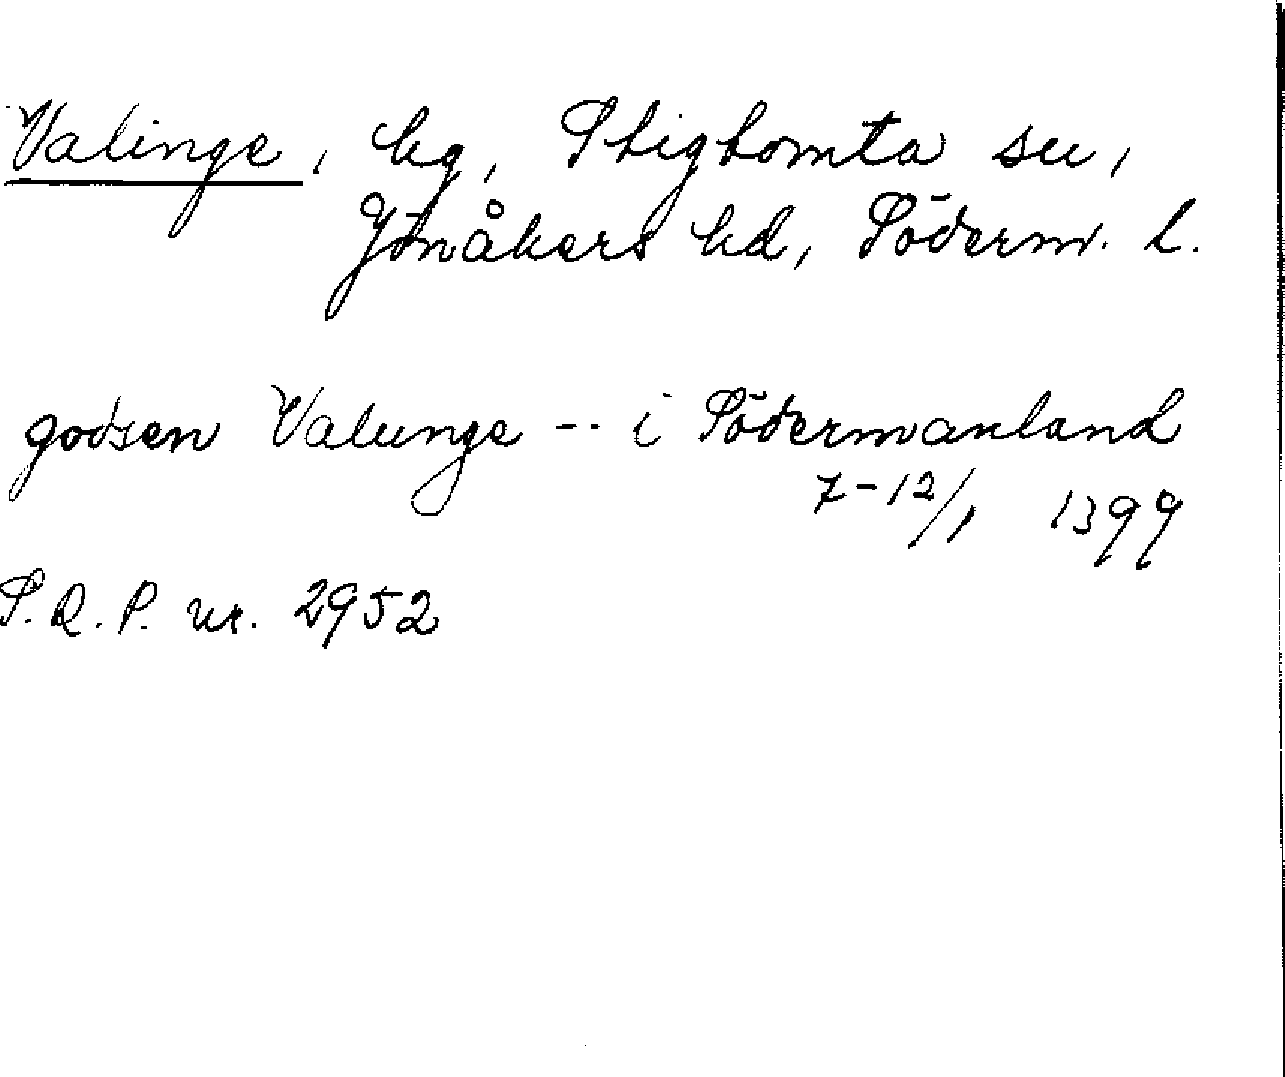 Valinge, hg, Stigtomta sn,
Jönåkers hd, Söderm. l.
godsen Valunge -- i Södermanland
7-12/1 1399
S.R.P. nr. 2952